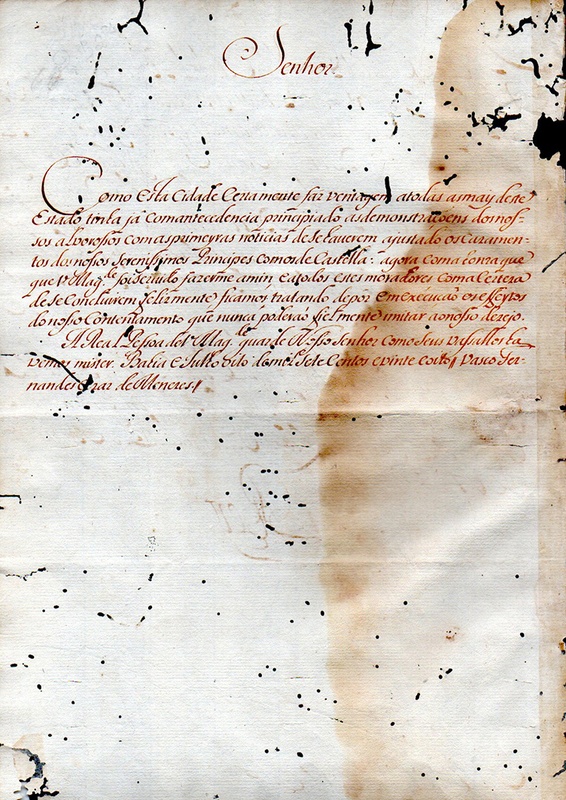 Senhor
Como Esta Cidade Certamente faz ventagem atodas asmais deste
Estado tinha já comantecedencia principiado asdemonstraçoens dos nos-
sos alvorossos comasprimeyras noticias deSehaverem ajustado osCazamen-
tos dosnossos Serenissimos Principes comosde Castella: agora comahonra que
que V Magde. foi servido fazerme amim, eatodos estes moradores comaCerteza
deSeConcluirem felizmente ficamos tratando depor emexecução os effeytos
donosso Contentamento que nunca poderão fielmente imitar aonosso dezejo.
A Real Pessoa deV Magde. guarde Nosso Senhor como Seus vassallos ha-
vemos mister. Bahia e Julho oito demil Sete Centos evinte eoito Vasco Fer-
nandes Cezar de Menezes